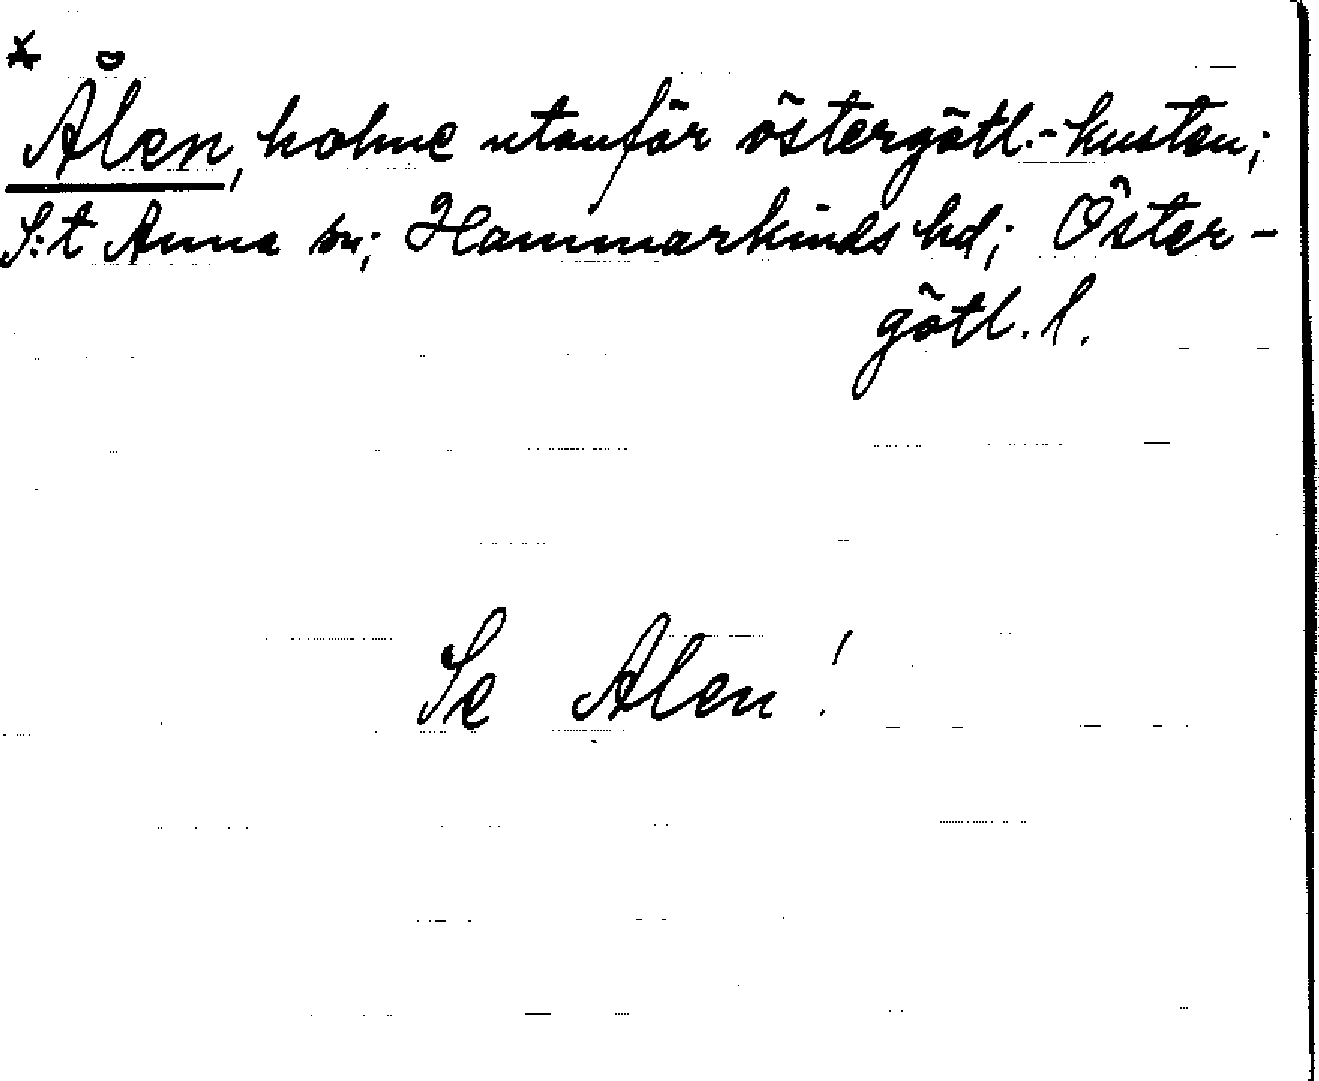 * Ålen, holme utanför östergötl.-kusten;
S:t Anna sn; Hammarkinds hd; Öster-
götl. l.
Se Alen!